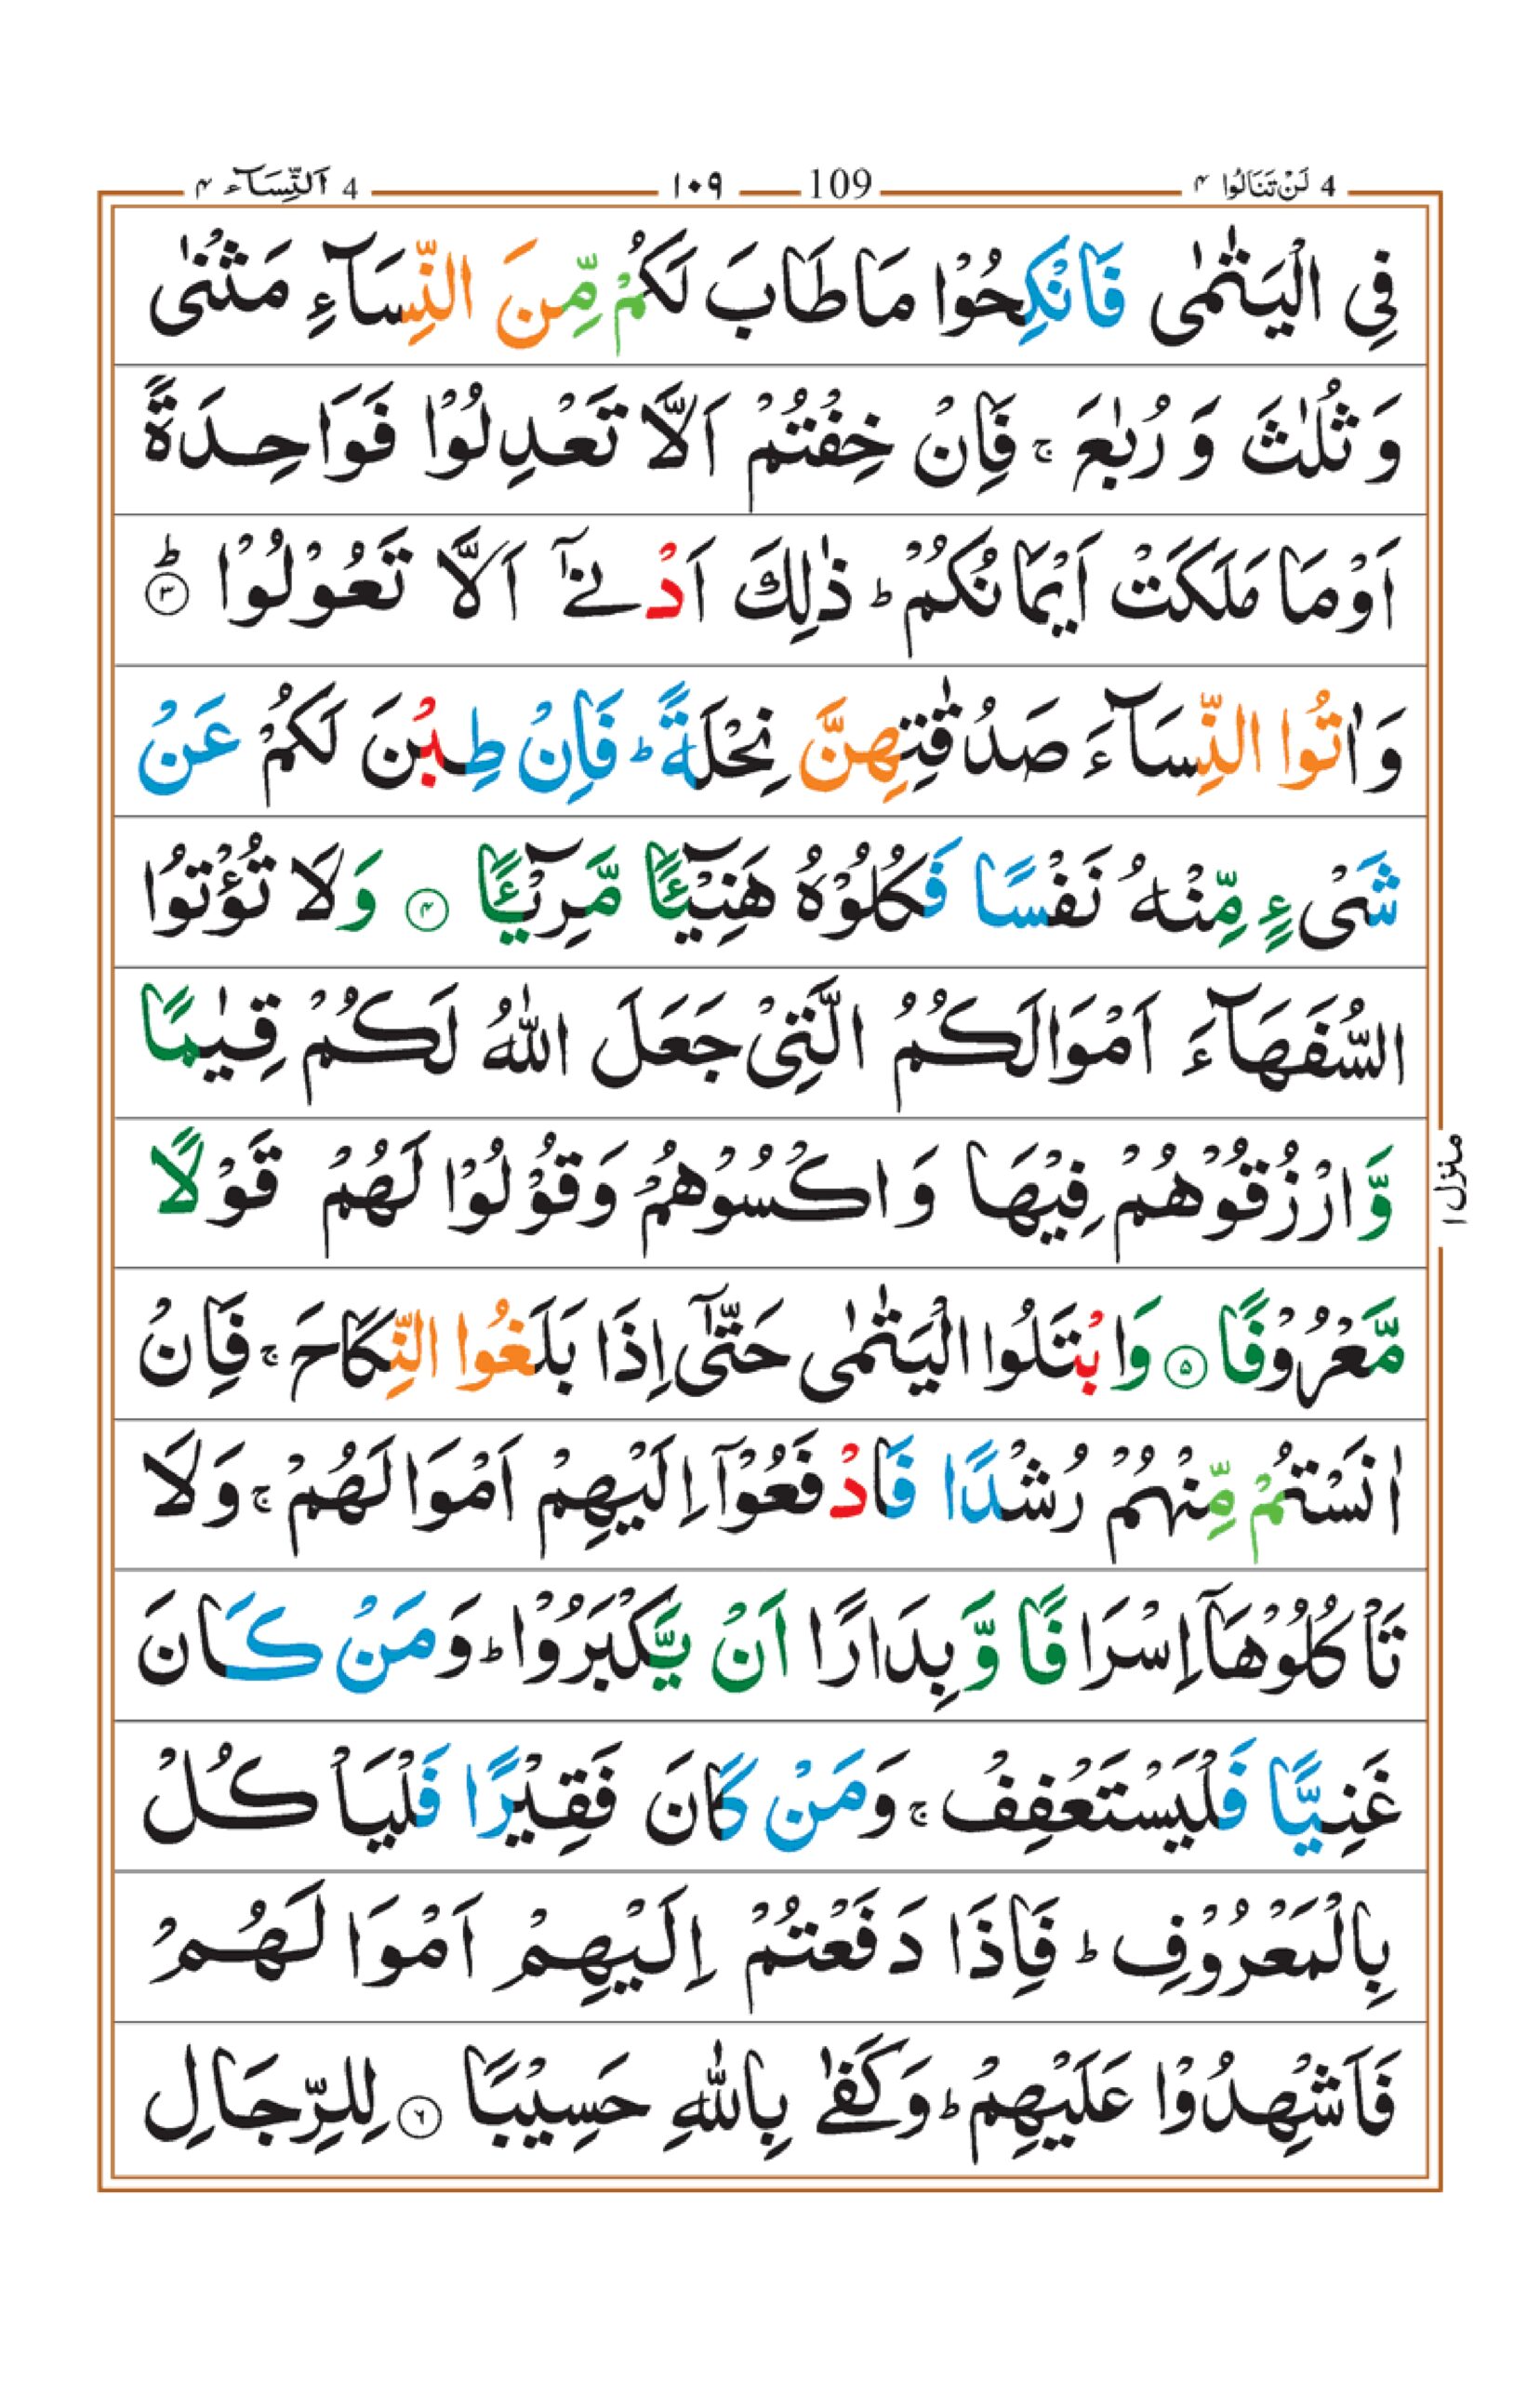 4 لَنْ تَنَالُوا ۴ 109 ۱۰۹ 4 اَلنِّسَآء ۴
فِى الْيَتٰمٰى فَانْكِحُوْا مَا طَابَ لَكُمْ مِّنَ النِّسَآءِ مَثْنٰى
وَ ثُلٰثَ وَ رُبٰعَ ۚ فَاِنْ خِفْتُمْ اَلَّا تَعْدِلُوْا فَوَاحِدَةً
اَوْ مَا مَلَكَتْ اَيْمَانُكُمْ ؕ ذٰلِكَ اَدْنٰٓى اَلَّا تَعُوْلُوْا ؕ ﴿۳﴾
وَ اٰتُوا النِّسَآءَ صَدُقٰتِهِنَّ نِحْلَةً ؕ فَاِنْ طِبْنَ لَكُمْ عَنْ
شَىْءٍ مِّنْهُ نَفْسًا فَكُلُوْهُ هَنِيْٓــًٔا مَّرِيْٓــًٔا ﴿۴﴾ وَلَا تُؤْتُوا
السُّفَهَآءَ اَمْوَالَكُمُ الَّتِىْ جَعَلَ اللّٰهُ لَكُمْ قِيٰمًا
وَّ ارْزُقُوْهُمْ فِيْهَا وَ اكْسُوْهُمْ وَقُوْلُوْا لَهُمْ قَوْلًا
مَّعْرُوْفًا ﴿۵﴾ وَابْتَلُوا الْيَتٰمٰى حَتّٰٓى اِذَا بَلَغُوا النِّكَاحَ ۚ فَاِنْ
اٰنَسْتُمْ مِّنْهُمْ رُشْدًا فَادْفَعُوْٓا اِلَيْهِمْ اَمْوَالَهُمْ ۚ وَلَا
تَاْكُلُوْهَآ اِسْرَافًا وَّ بِدَارًا اَنْ يَّكْبَرُوْا ؕ وَمَنْ كَانَ
غَنِيًّا فَلْيَسْتَعْفِفْ ۚ وَمَنْ كَانَ فَقِيْرًا فَلْيَاْكُلْ
بِالْمَعْرُوْفِ ؕ فَاِذَا دَفَعْتُمْ اِلَيْهِمْ اَمْوَالَهُمْ
فَاَشْهِدُوْا عَلَيْهِمْ ؕ وَكَفٰى بِاللّٰهِ حَسِيْبًا ﴿۶﴾ لِلرِّجَالِ
منزل ۱